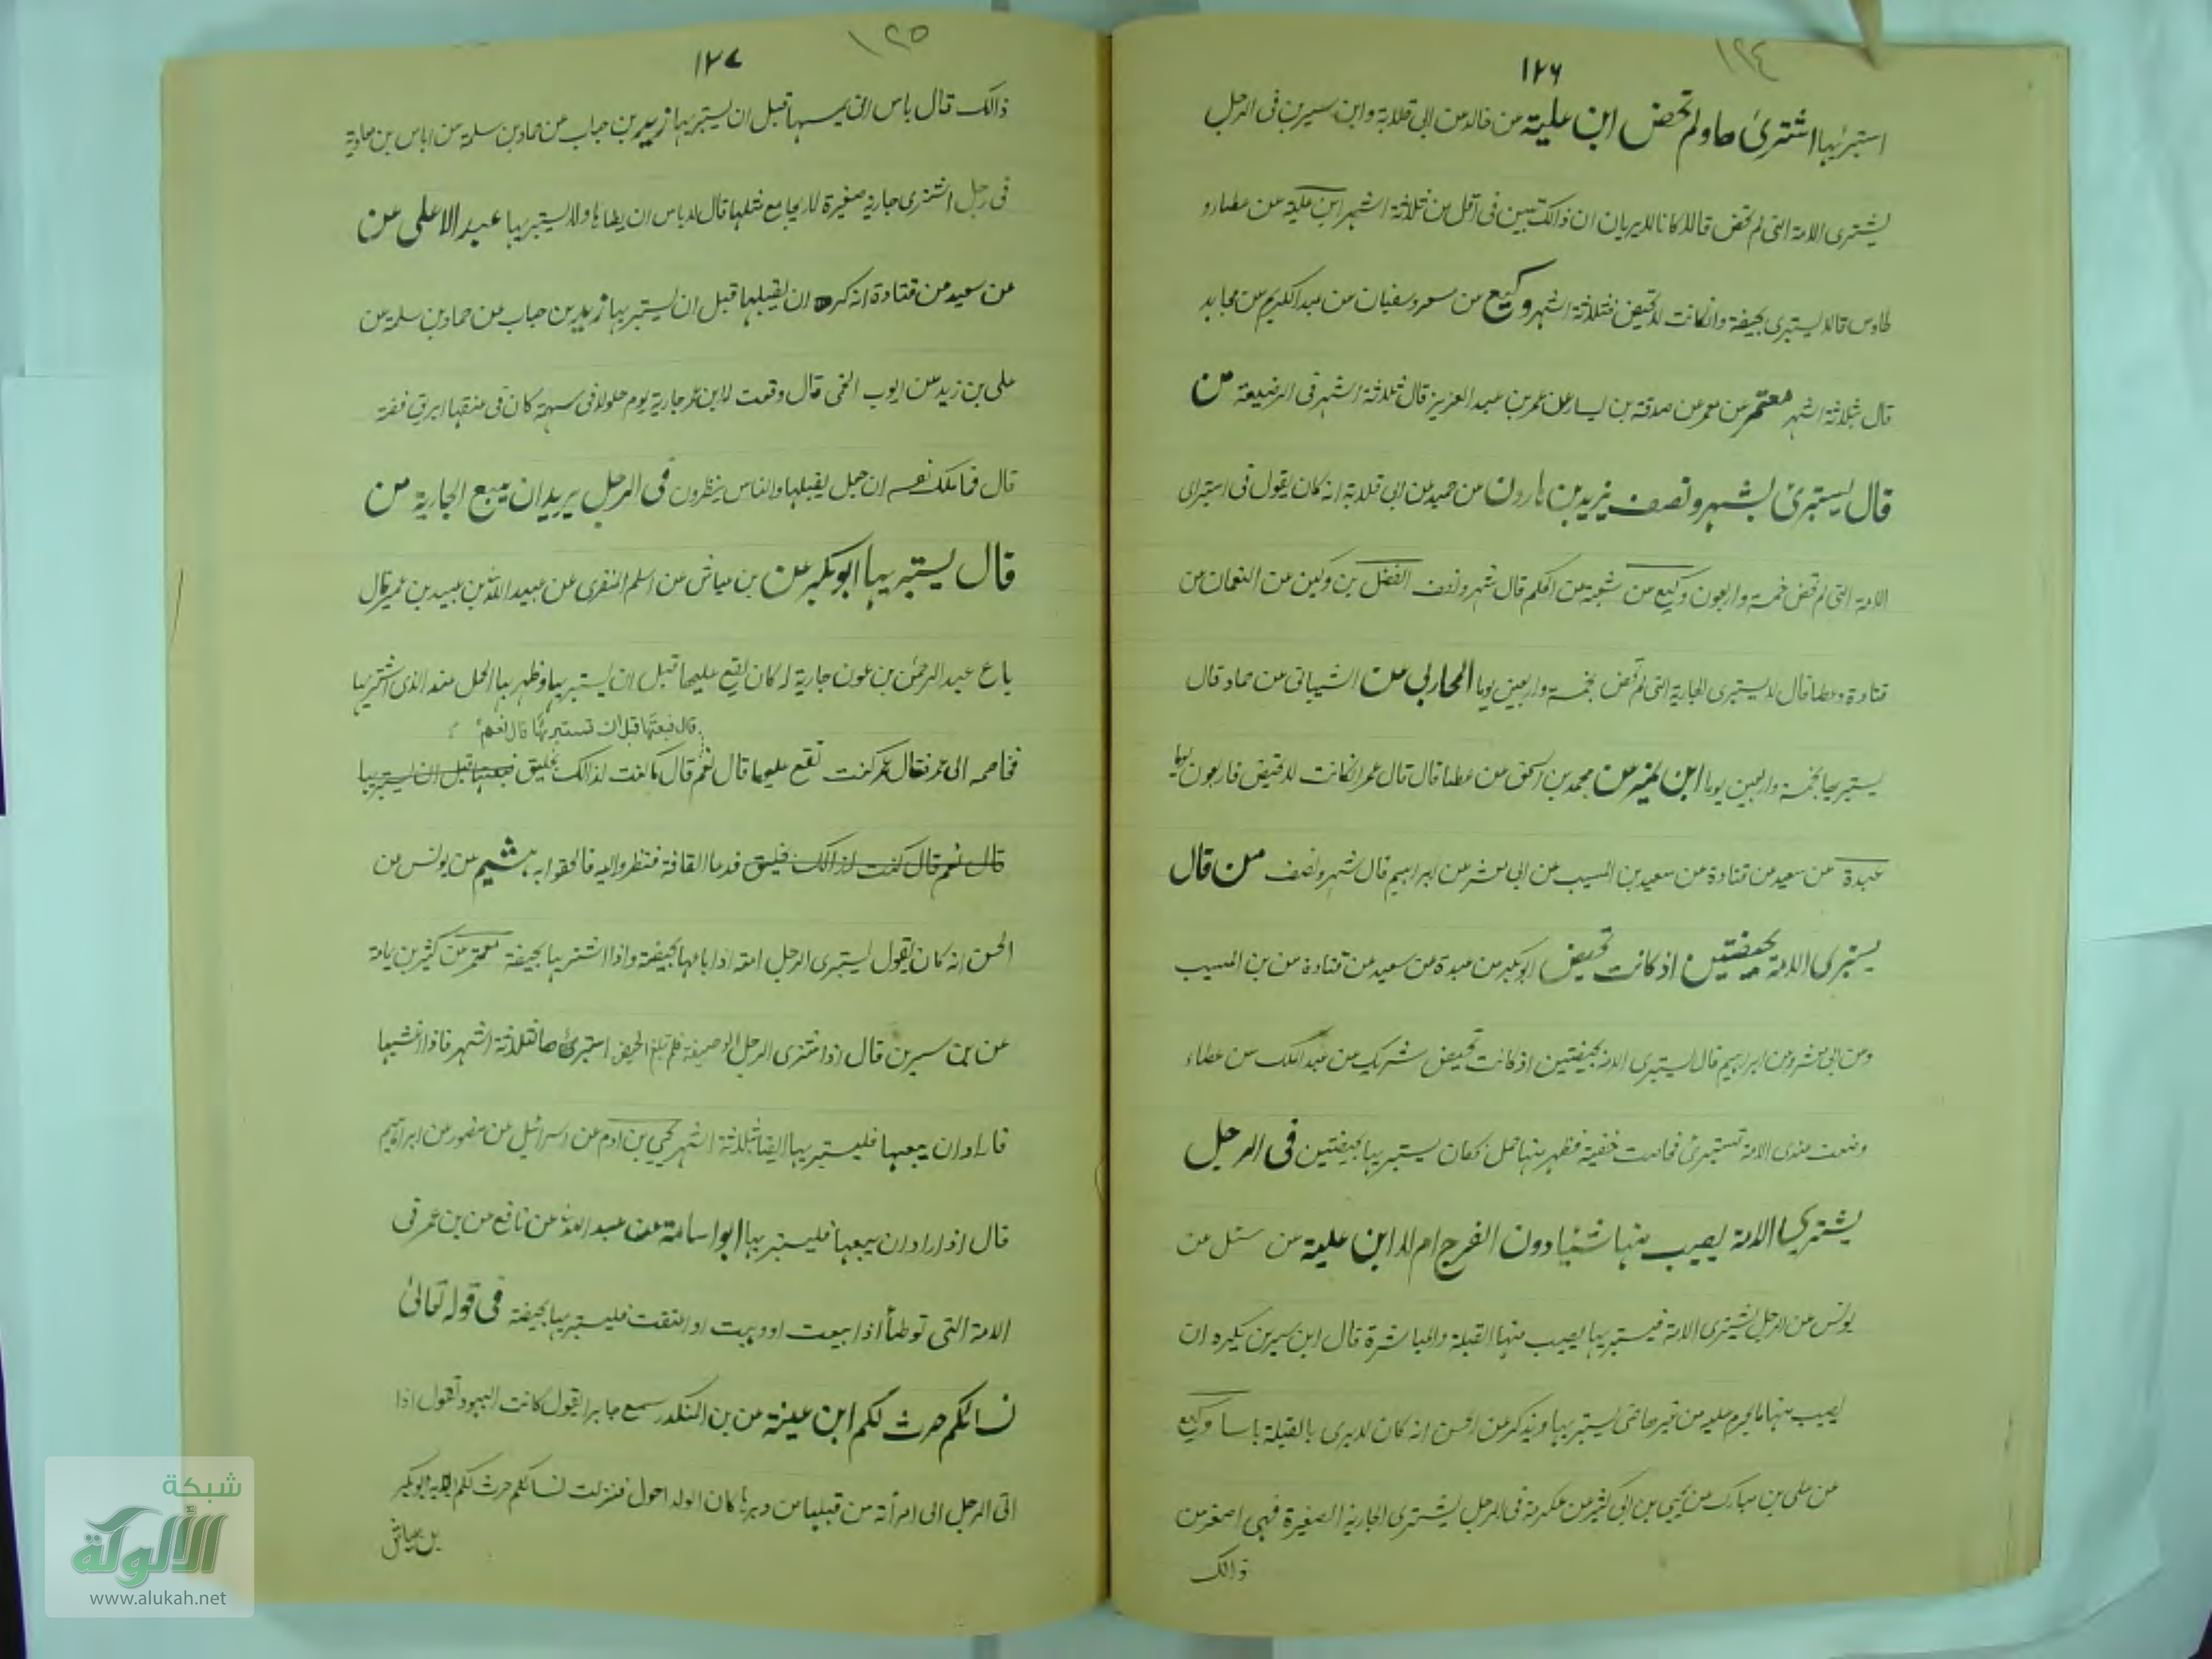 ١٢٤
١٢٦
استبرئها اشترى ها ولم تحض ابن علية عن خالد عن ابى قلابة وابن سيرين فى الرجل
يشترى الامة التى لم تحض قالا كانا لا يريان ان ذالك تبين فى اقل من ثلاثة اشهر ابن علية عن عطا و
طاوس قالا يستبرى بحيضة وان كانت لا تحيض فثلاثة اشهر وكيع عن مسعر وسفيان عن عبد الكريم عن مجاهد
قال ثلاثة اشهر معتمر عن معمر عن صدقة بن يسار عن عمر بن عبد العزيز قال ثلاثة اشهر فى الرضيعة من
قال يستبرئ بشهر ونصف يزيد بن هارون عن حميد عن ابى قلابة انه كان يقول فى استبراى
الامة التى لم تحض خمسة واربعون وكيع عن شعبة عن الحكم قال شهر ونصف الفضل بن دكين عن النعمان عن
قتادة وعطا قال لا يستبرى الجارية التى لم تحض بخمسة واربعين يوما المحاربى عن الشيبانى عن حماد قال
يستبريها بخمسة واربعين يوما ابن نمير عن محمد بن اسحق عن عطا قال قال عمر ان كانت لا تحيض فاربعون ليلة
عبدة عن سعيد عن قتادة عن سعيد بن المسيب عن ابى معشر عن ابراهيم قال شهر ونصف من قال
يستبرى الامة بحيضتين اذ كانت تحيض ابو بكر عن عبدة عن سعيد عن قتادة عن بن المسيب
وعن ابى معشر وعن ابراهيم قال يستبرى الامة بحيضتين اذ كانت تحيض شريك عن عبد الملك عن عطاء
وضعت عندى الامة تستبرئ فحاضت حيضة فظهر منها حمل فكان يستبريها بحيضتين فى الرجل
يشترى الامة يصيب منها شيئا دون الفرج ام لا ابن علية عن سئل عن
يونس عن الرجل يشترى الامة فيستبريها يصيب منها القبلة والمباشرة قال ابن سيرين يكره ان
يصيب منها ما يحرم عليه من غيرها حتى يستبريها ويذكر عن الحسن انه كان لا يرى بالقبلة باسا وكيع
عن على بن مبارك عن يحيى بن ابى كثير عن عكرمة فى الرجل يشترى الجارية الصغيرة فهى اصغر من
ذالك
١٢٥
١٢٧
ذالك قال باس ان يمسها قبل ان يستبريها زيد بن حباب عن حماد بن سلمة عن اياس بن معاوية
فى رجل اشترى جارية صغيرة لا يجامع مثلها قال لا باس ان يطاها ولا يستبريها عبد الاعلى عن
عن سعيد عن قتادة انه كره ان يقبلها قبل ان يستبريها زيد بن حباب عن حماد بن سلمة عن
على بن زيد عن ايوب اللخمى قال وقعت لابن عمر جارية يوم جلولا فى سهمه كان فى عنقها ابريق فضة
قال فما ملك نفسه ان جعل يقبلها والناس ينظرون فى الرجل يريد ان يبيع الجارية من
قال يستبريها ابو بكر عن بن عياش عن اسلم المنقرى عن عبيد الله بن عبيد بن عمير قال
باع عبد الرحمن بن عون جارية له كان يقع عليها قبل ان يستبريها وظهر بها الحمل عند الذى اشتريها
قال فبعتها قبل ان تستبريها قال نعم
فخاصمه الى عمر فقال عمر كنت تقع عليها قال نعم قال ما كنت لذالك بخليق فبعتها قبل ان يستبريها
قال نعم قال كنت لذالك خليق فدعا القافة فنظروا اليه فالحقوا به هشيم عن يونس عن
الحسن انه كان يقول يستبرى الرجل امته اذا باعها بحيضة واذا اشتريها بحيضة معتمر عن كثير بن يامة
عن بن سيرين قال اذا اشترى الرجل الوصيفة فلم تبلغ الحيض استبرئها بثلاثة اشهر فاذا غشيها
فاراد ان يبيعها فليستبريها ايضا بثلاثة اشهر يحيى بن ادم عن اسرائيل عن منصور عن ابراهيم
قال اذا اراد ان يبيعها فليستبريها ابو اسامة عن عبد الله عن نافع عن بن عمر فى
الامة التى توطأ اذا بيعت او وهبت او اعتقت فليستبريها بحيضة فى قوله تعالى
نسائكم حرث لكم ابن عيينة عن بن المنكدر سمع جابرا يقول كانت اليهود تقول اذا
اتى الرجل الى امرأته من قبلها من دبرها كان الولد احول فنزلت نسائكم حرث لكم ابو بكر
بن عياش
شبكة
الألوكة
www.alukah.net